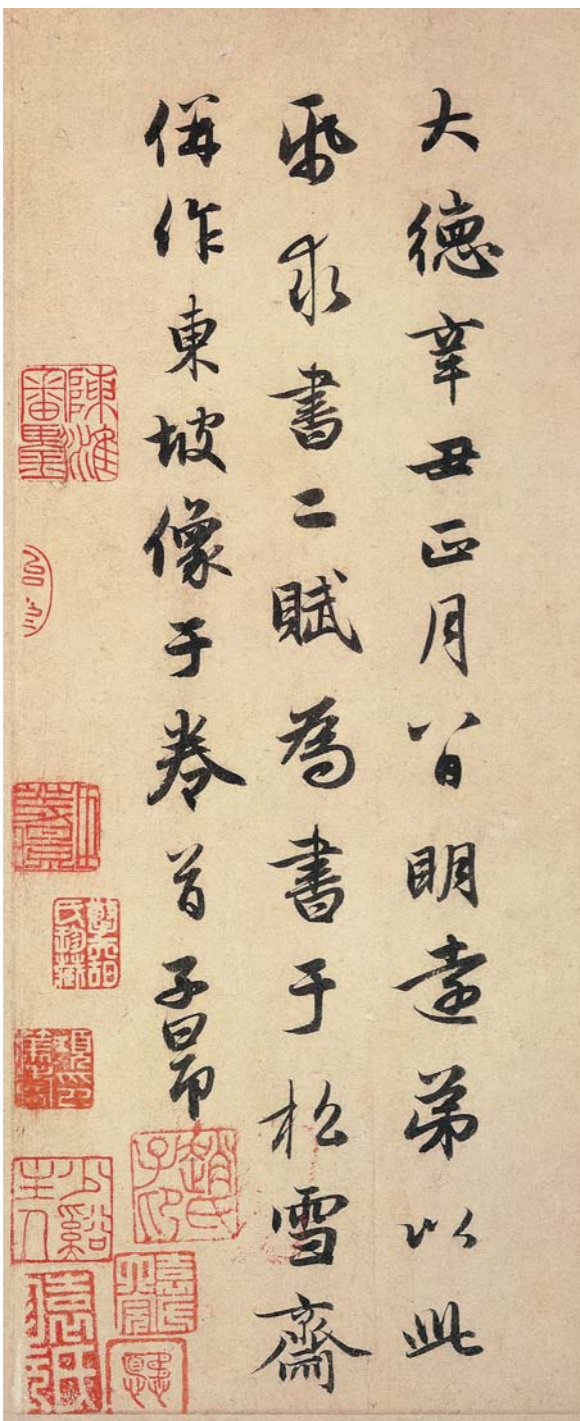 大德辛丑正月八日明遠弟以此
帋求書二賦為書于松雪齋
併作東坡像于卷首子昂
趙氏子昂